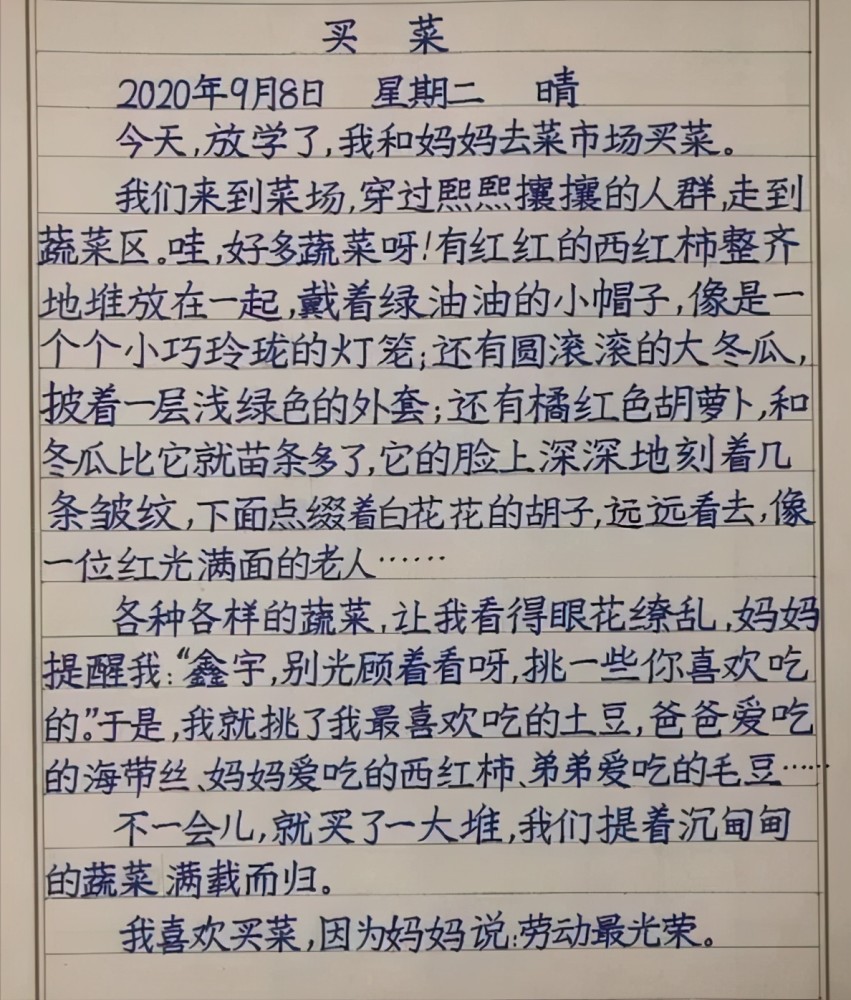 买 菜
2020年9月8日 星期二 晴
今天,放学了,我和妈妈去菜市场买菜。
我们来到菜场,穿过熙熙攘攘的人群,走到
蔬菜区。哇,好多蔬菜呀!有红红的西红柿整齐
地堆放在一起,戴着绿油油的小帽子,像是一
个个小巧玲珑的灯笼;还有圆滚滚的大冬瓜,
披着一层浅绿色的外套;还有橘红色胡萝卜,和
冬瓜比它就苗条多了,它的脸上深深地刻着几
条皱纹,下面点缀着白花花的胡子,远远看去,像
一位红光满面的老人……
各种各样的蔬菜,让我看得眼花缭乱,妈妈
提醒我:“鑫宇,别光顾着看呀,挑一些你喜欢吃
的。”于是,我就挑了我最喜欢吃的土豆,爸爸爱吃
的海带丝、妈妈爱吃的西红柿、弟弟爱吃的毛豆……
不一会儿,就买了一大堆,我们提着沉甸甸
的蔬菜满载而归。
我喜欢买菜,因为妈妈说:劳动最光荣。